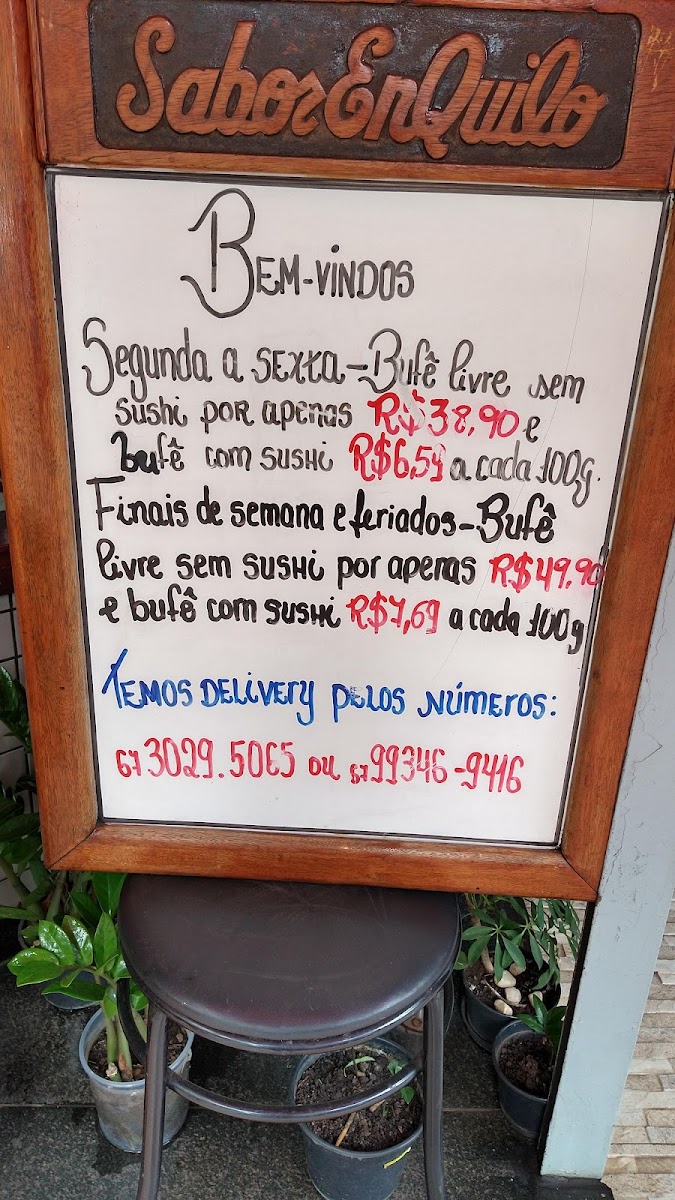 SaborEnQuilo
BEM-VINDOS
Segunda a SEXTA-Bufê livre sem
SUSHi por apenas R$38,90 e
bufê com SUSHi R$6,59 a cada 100g.
Finais de semana e feriados-Bufê
livre sem SUSHi por apenas R$49,90
e bufê com SUSHi R$7,69 a cada 100g
TEMOS DELIVERY PELOS NÚMEROS:
67 3029.5065 ou 67 99346-9416